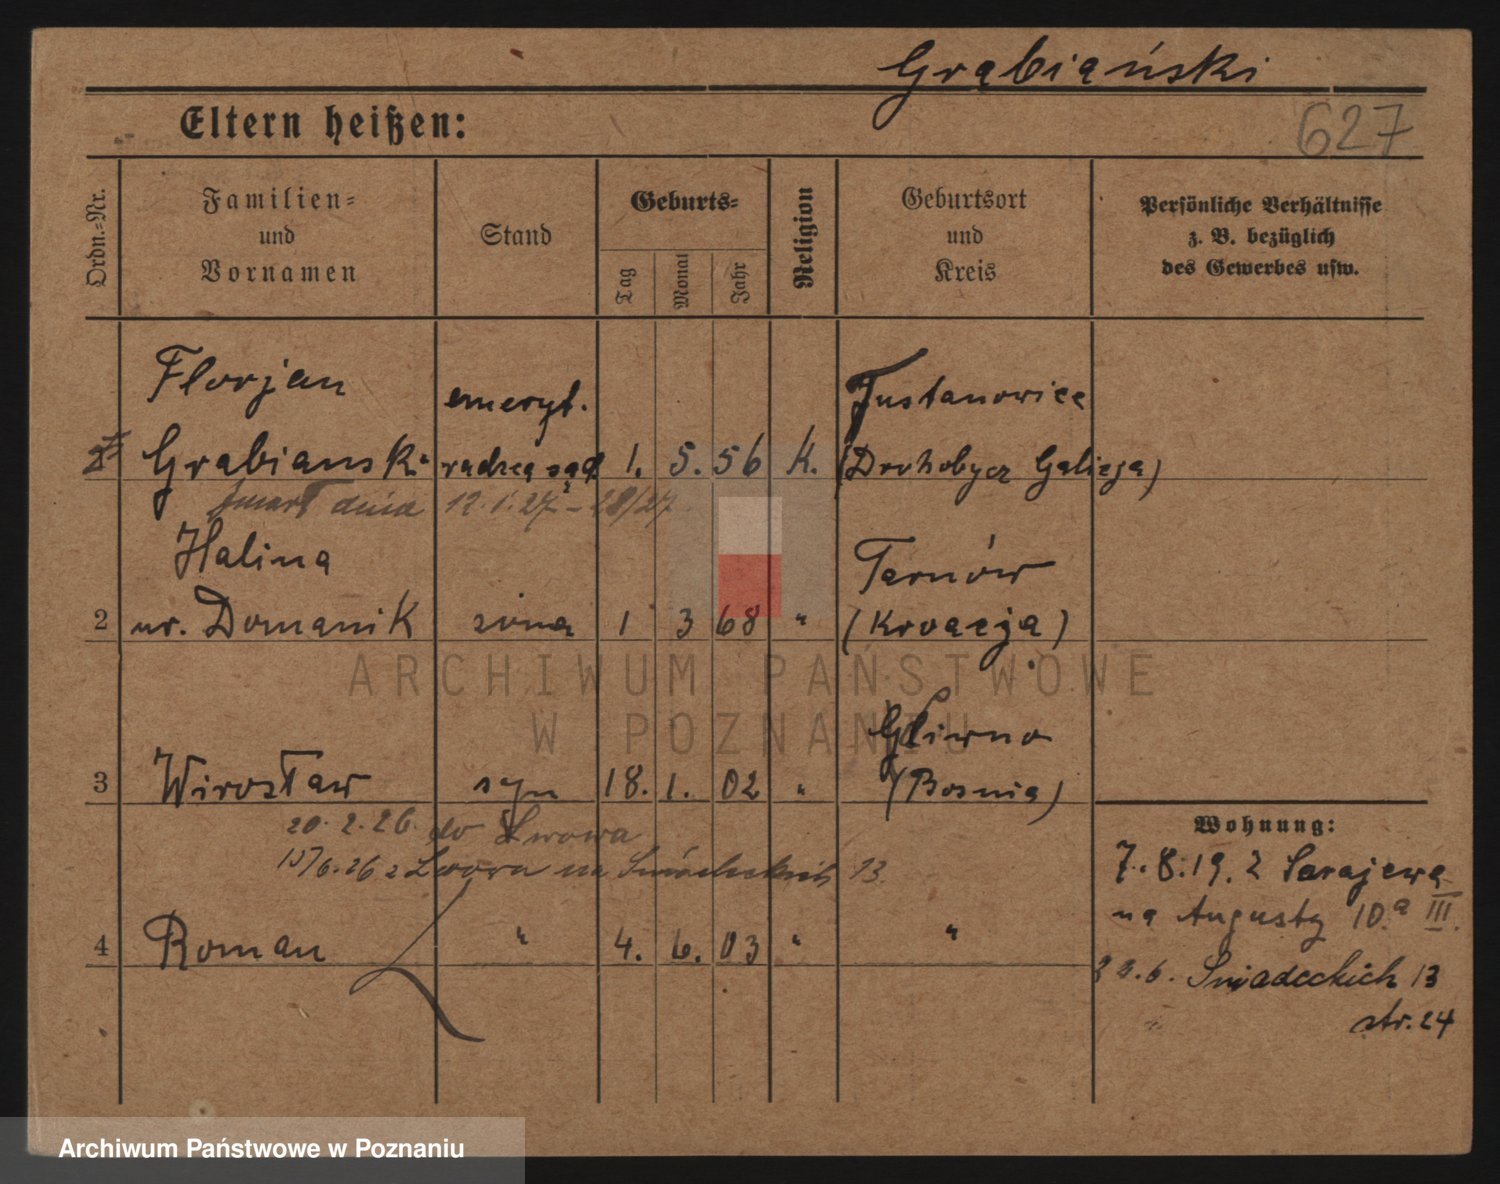 Grąbiański
627
Eltern heißen:
Ordn.-Nr.
Familien-
und
Vornamen
Stand
Geburts-
Tag
Monat
Jahr
Religion
Geburtsort
und
Kreis
Persönliche Verhältnisse
z. B. bezüglich
des Gewerbes usw.
Florjan
Grabianski
emeryt.
radzca sąd
1. 5. 56 K.
Tustanowice
(Drohobycz Galicja)
zmarł dnia 12.1.27 - 28/27
2
Halina
ur. Domanik
żona
1 3 68 "
Tarnów
(Kroacja)
ARCHIWUM PAŃSTWOWE
W POZNANIU
3 Wirosław syn 18. 1. 02 "
Gliwno
(Bosnia)
20.2.26. do Lwowa
15/6.26 z Lwowa na Śniadeckich 13.
4 Roman " 4. 6. 03 " "
Wohnung:
7.8.19. z Sarajewa
na Augusty 10.a III.
6. Sniadeckich 13
str. 24
Archiwum Państwowe w Poznaniu